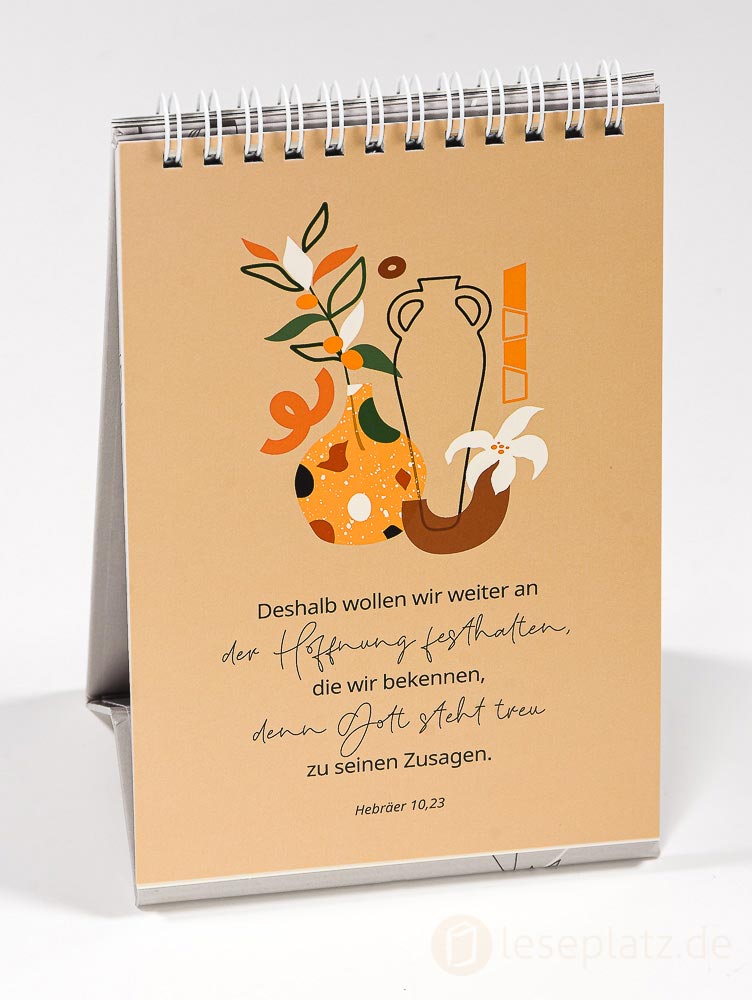 Deshalb wollen wir weiter an
der Hoffnung festhalten,
die wir bekennen,
denn Gott steht treu
zu seinen Zusagen.
Hebräer 10,23
leseplatz.de